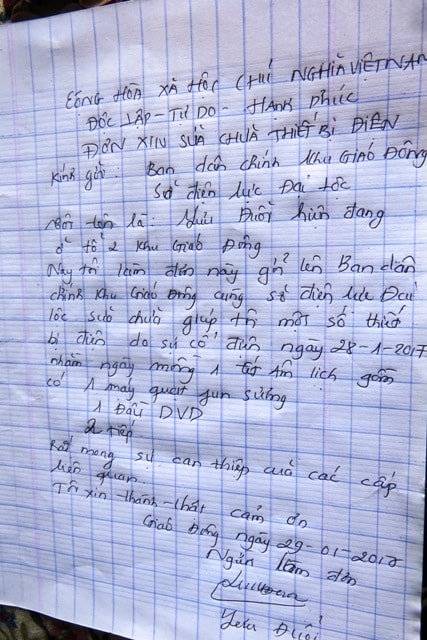 CỘNG HÒA XÃ HỘI CHỦ NGHĨA VIỆT NAM
ĐỘC LẬP - TỰ DO - HẠNH PHÚC
ĐƠN XIN SỬA CHỮA THIẾT BỊ ĐIỆN
Kính gửi: Ban dân chính khu Giáo Đông
Sở điện lực Đại Lộc
Tôi tên là: Đuổi hiện đang
ở tổ 2 khu Giáo Đông
Nay tôi làm đơn này gửi lên Ban dân
chính khu Giáo Đông cùng sở điện lực Đại
Lộc sửa chữa giúp tôi một số thiết
bị điện do sự cố điện ngày 28-1-2017
nhằm ngày mồng 1 tết âm lịch gồm
có 1 máy quạt sương
1 Đầu DVD
Rất mong sự can thiệp của các cấp
liên quan
Tôi xin chân thành cảm ơn
Giáo Đông ngày 29-01-2017
Người làm đơn
Đuổi